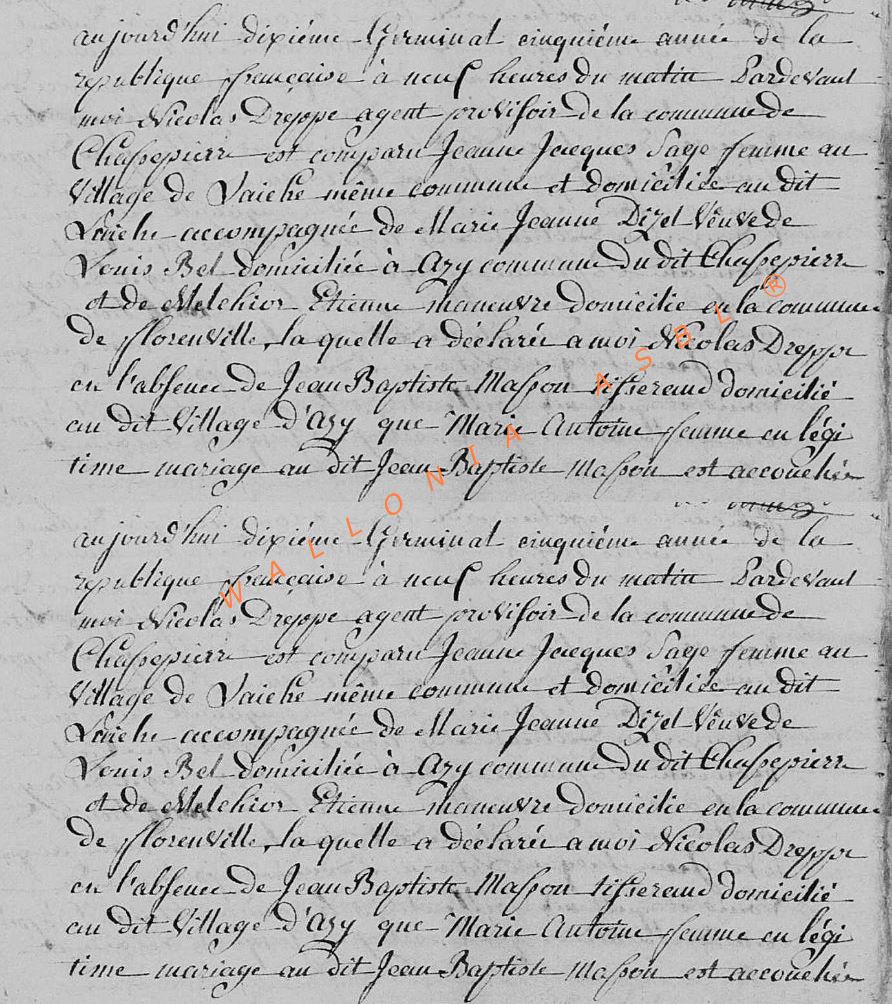 aujourd'hui dixiéme Germinal cinquiéme année de la
republique française à neuf heures du matin Pardevant
moi Nicolas Dreppe agent provisoir de la commune de
Chassepierre est comparu Jeanne Jacques Sage femme au
Village de Laiche même commune et domiciliée au dit
Laiche accompagnée de Marie Jeanne Dizet Veuve de
Louis Bel domiciliée à Azy commune du dit Chassepierre
et de Melchior Etienne maneuvre domicilie en la commune
de florenville, la quelle a déclarée a moi Nicolas Dreppe
en l'absence de Jean Baptiste Masson tisserand domicilié
au dit Village d'Azy que Marie Antoine femme en légi
time mariage au dit Jean Baptiste Masson est accouchée
WALLONIA ASBL ®
aujourd'hui dixiéme Germinal cinquiéme année de la
republique française à neuf heures du matin Pardevant
moi Nicolas Dreppe agent provisoir de la commune de
Chassepierre est comparu Jeanne Jacques Sage femme au
Village de Laiche même commune et domiciliée au dit
Laiche accompagnée de Marie Jeanne Dizet Veuve de
Louis Bel domiciliée à Azy commune du dit Chassepierre
et de Melchior Etienne maneuvre domicilie en la commune
de florenville, la quelle a déclarée a moi Nicolas Dreppe
en l'absence de Jean Baptiste Masson tisserand domicilié
au dit Village d'Azy que Marie Antoine femme en légi
time mariage au dit Jean Baptiste Masson est accouchée